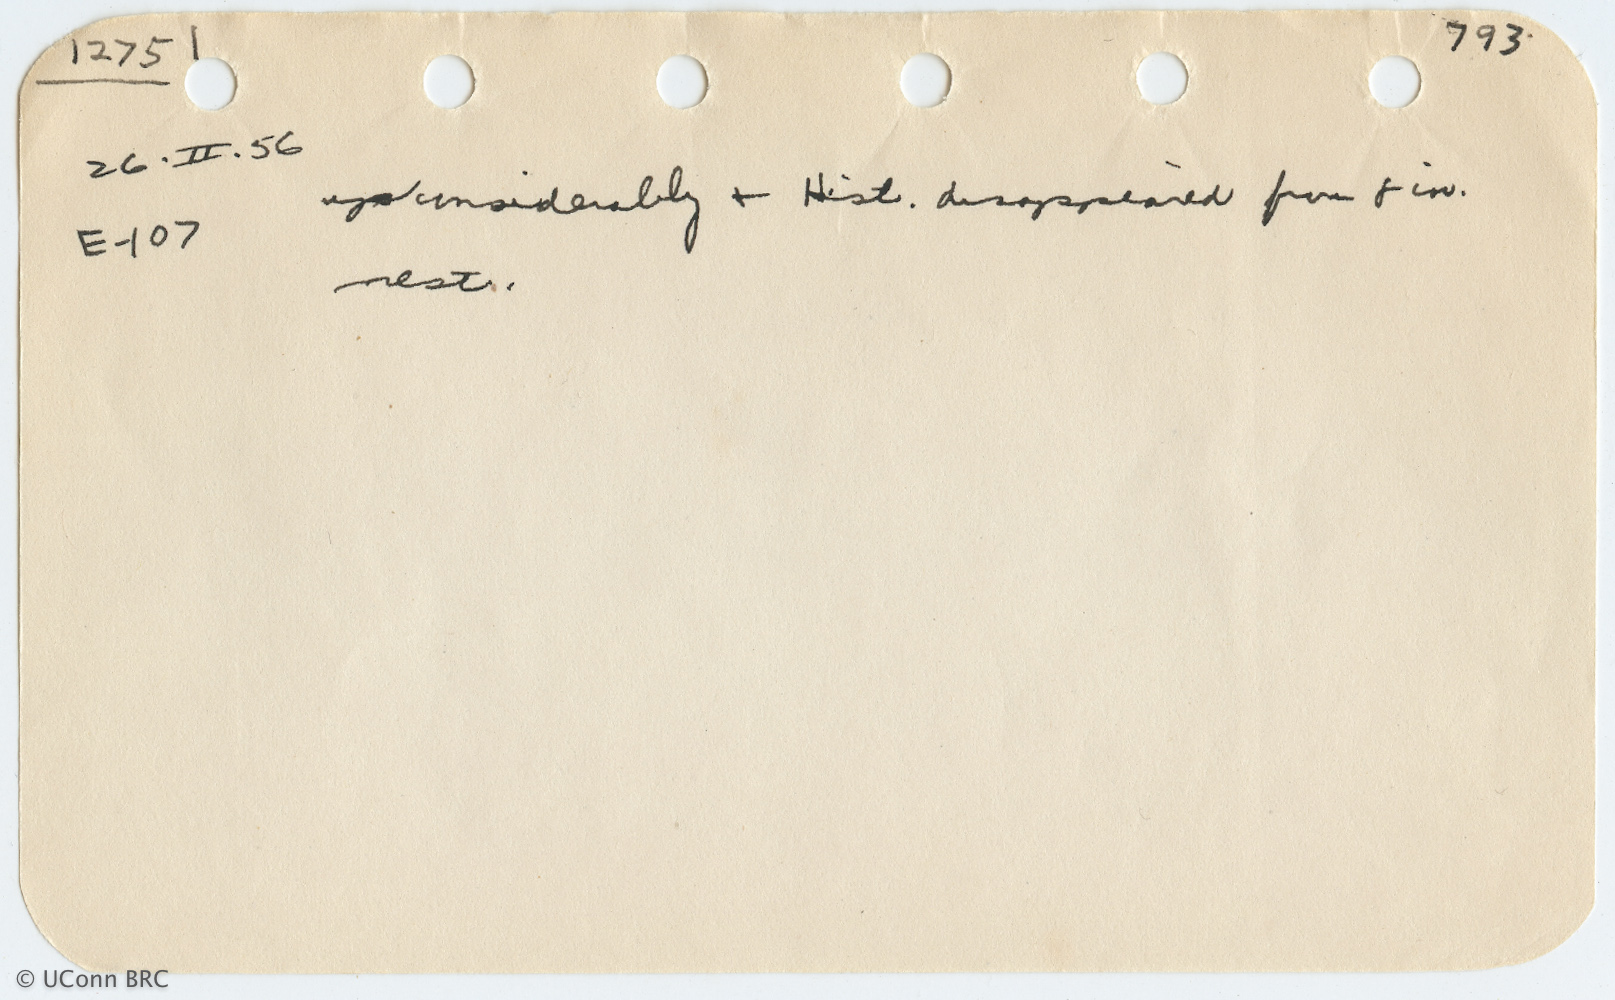 1275 793.
26.II.56
up considerably + Hist. disappeared from & in.
E-107
nest.
© UConn BRC